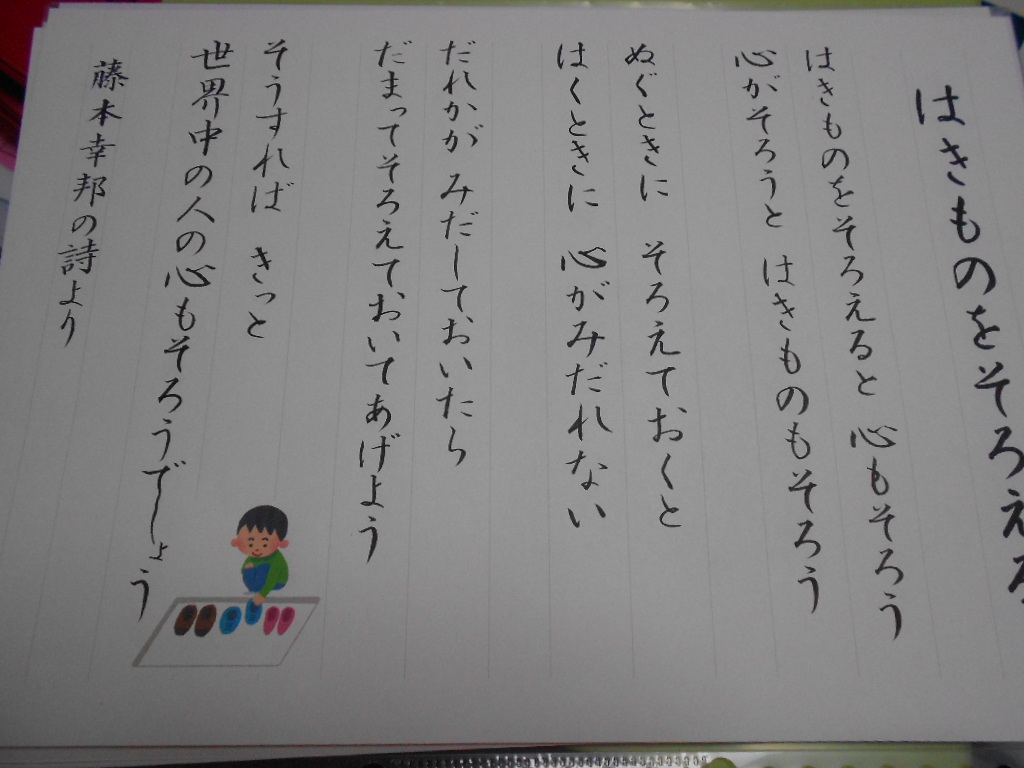 はきものをそろえる
はきものをそろえると 心もそろう
心がそろうと はきものもそろう
ぬぐときに そろえておくと
はくときに 心がみだれない
だれかが みだしておいたら
だまってそろえておいてあげよう
そうすれば きっと
世界中の人の心もそろうでしょう
藤本幸邦の詩より